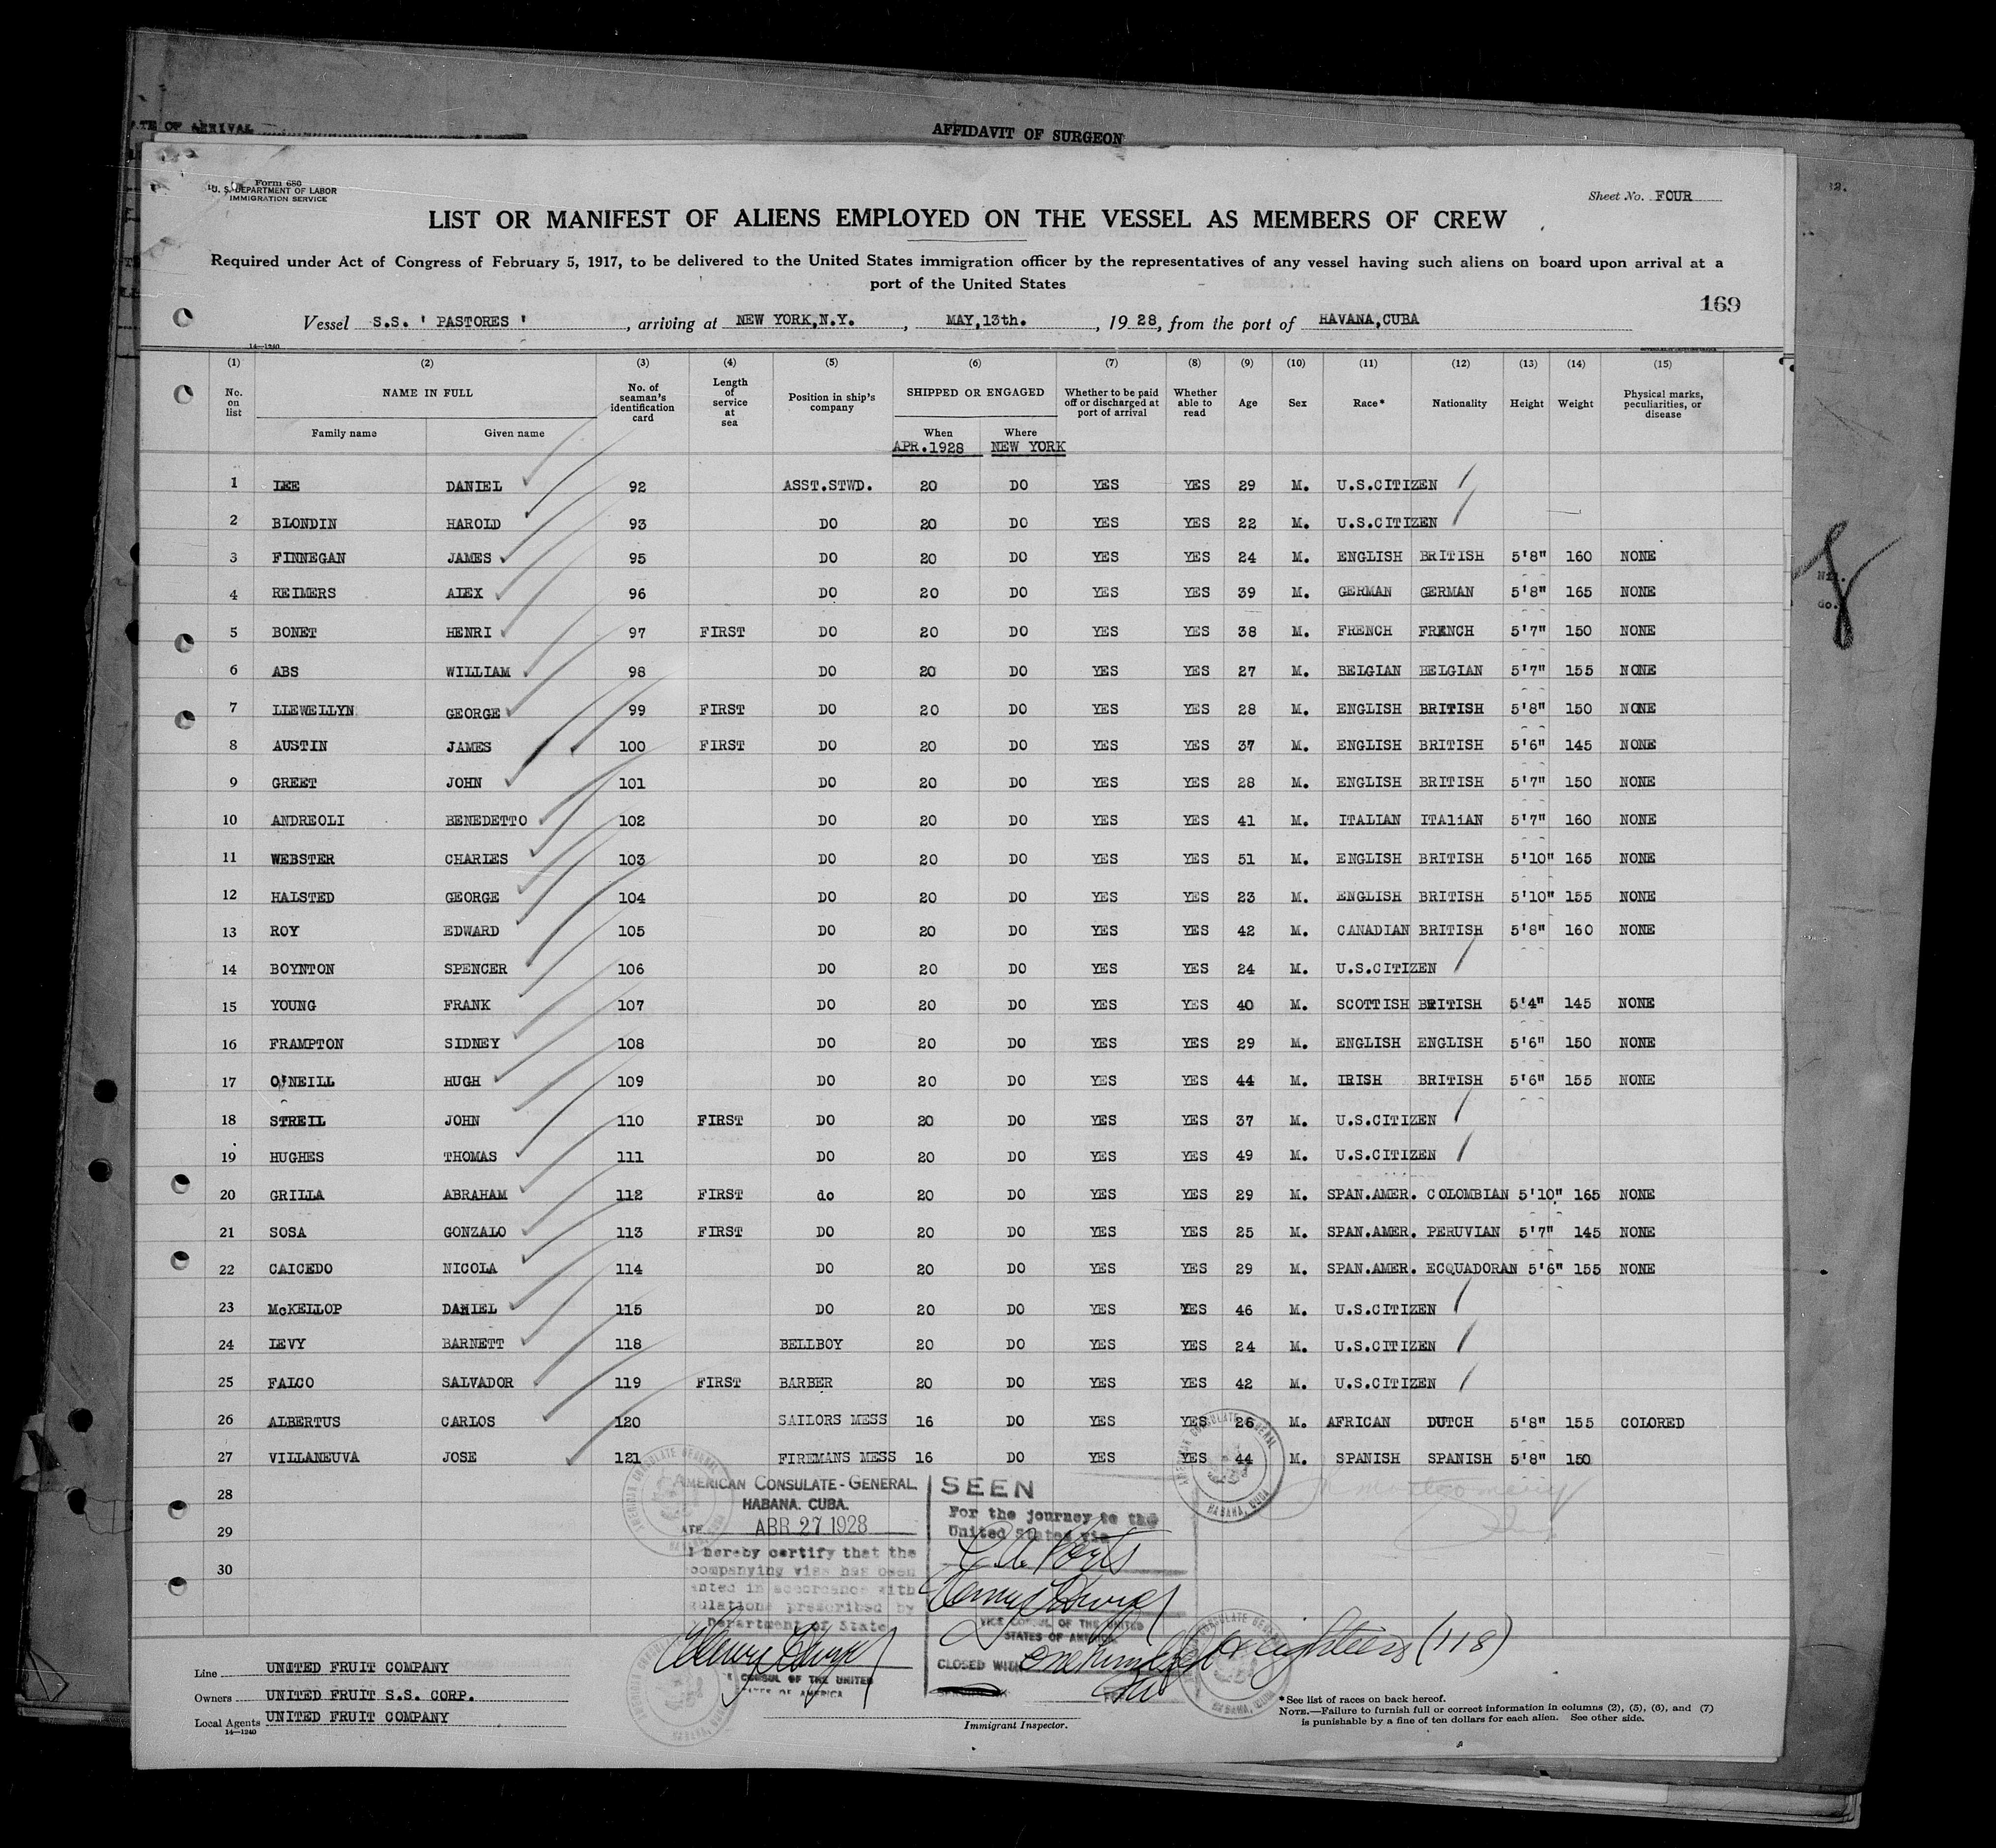 ATE OF ARRIVAL
AFFIDAVIT OF SURGEON
Form 680
U. S. DEPARTMENT OF LABOR
IMMIGRATION SERVICE
Sheet No. FOUR
LIST OR MANIFEST OF ALIENS EMPLOYED ON THE VESSEL AS MEMBERS OF CREW
Required under Act of Congress of February 5, 1917, to be delivered to the United States immigration officer by the representatives of any vessel having such aliens on board upon arrival at a
port of the United States
169
Vessel S.S. ' PASTORES ' , arriving at NEW YORK,N.Y. , MAY,13th. , 1928, from the port of HAVANA,CUBA
14—1240
(1) (2) (3) (4) (5) (6) (7) (8) (9) (10) (11) (12) (13) (14) (15)
No. on list NAME IN FULL Family name Given name No. of seaman's identification card Length of service at sea Position in ship's company SHIPPED OR ENGAGED When Where Whether to be paid off or discharged at port of arrival Whether able to read Age Sex Race* Nationality Height Weight Physical marks, peculiarities, or disease
APR.1928 NEW YORK
1 LEE DANIEL 92 ASST.STWD. 20 DO YES YES 29 M. U.S.CITIZEN
2 BLONDIN HAROLD 93 DO 20 DO YES YES 22 M. U.S.CITIZEN
3 FINNEGAN JAMES 95 DO 20 DO YES YES 24 M. ENGLISH BRITISH 5'8" 160 NONE
4 REIMERS ALEX 96 DO 20 DO YES YES 39 M. GERMAN GERMAN 5'8" 165 NONE
5 BONET HENRI 97 FIRST DO 20 DO YES YES 38 M. FRENCH FRENCH 5'7" 150 NONE
6 ABS WILLIAM 98 DO 20 DO YES YES 27 M. BELGIAN BELGIAN 5'7" 155 NONE
7 LLEWELLYN GEORGE 99 FIRST DO 20 DO YES YES 28 M. ENGLISH BRITISH 5'8" 150 NONE
8 AUSTIN JAMES 100 FIRST DO 20 DO YES YES 37 M. ENGLISH BRITISH 5'6" 145 NONE
9 GREET JOHN 101 DO 20 DO YES YES 28 M. ENGLISH BRITISH 5'7" 150 NONE
10 ANDREOLI BENEDETTO 102 DO 20 DO YES YES 41 M. ITALIAN ITAliAN 5'7" 160 NONE
11 WEBSTER CHARLES 103 DO 20 DO YES YES 51 M. ENGLISH BRITISH 5'10" 165 NONE
12 HALSTED GEORGE 104 DO 20 DO YES YES 23 M. ENGLISH BRITISH 5'10" 155 NONE
13 ROY EDWARD 105 DO 20 DO YES YES 42 M. CANADIAN BRITISH 5'8" 160 NONE
14 BOYNTON SPENCER 106 DO 20 DO YES YES 24 M. U.S.CITIZEN
15 YOUNG FRANK 107 DO 20 DO YES YES 40 M. SCOTTISH BRITISH 5'4" 145 NONE
16 FRAMPTON SIDNEY 108 DO 20 DO YES YES 29 M. ENGLISH ENGLISH 5'6" 150 NONE
17 O'NEILL HUGH 109 DO 20 DO YES YES 44 M. IRISH BRITISH 5'6" 155 NONE
18 STREIL JOHN 110 FIRST DO 20 DO YES YES 37 M. U.S.CITIZEN
19 HUGHES THOMAS 111 DO 20 DO YES YES 49 M. U.S.CITIZEN
20 GRILLA ABRAHAM 112 FIRST do 20 DO YES YES 29 M. SPAN.AMER. COLOMBIAN 5'10" 165 NONE
21 SOSA GONZALO 113 FIRST DO 20 DO YES YES 25 M. SPAN.AMER. PERUVIAN 5'7" 145 NONE
22 CAICEDO NICOLA 114 DO 20 DO YES YES 29 M. SPAN.AMER. ECQUADORAN 5'6" 155 NONE
23 McKELLOP DANIEL 115 DO 20 DO YES YES 46 M. U.S.CITIZEN
24 LEVY BARNETT 118 BELLBOY 20 DO YES YES 24 M. U.S.CITIZEN
25 FALCO SALVADOR 119 FIRST BARBER 20 DO YES YES 42 M. U.S.CITIZEN
26 ALBERTUS CARLOS 120 SAILORS MESS 16 DO YES YES 26 M. AFRICAN DUTCH 5'8" 155 COLORED
27 VILLANEUVA JOSE 121 FIREMANS MESS 16 DO YES YES 44 M. SPANISH SPANISH 5'8" 150
28
29
30
AMERICAN CONSULATE-GENERAL
HABANA, CUBA.
ATE ABR 27 1928
I hereby certify that the
companying visa has been
anted in accordance with
gulations prescribed by
Department of State
CONSUL OF THE UNITED
STATES OF AMERICA
SEEN
For the journey to the
United States via
VICE CONSUL OF THE UNITED
STATES OF AMERICA
CLOSED WITH one hundred & eighteen (118)
AMERICAN CONSULATE GENERAL
HABANA, CUBA
Line UNITED FRUIT COMPANY
Owners UNITED FRUIT S.S. CORP.
Local Agents UNITED FRUIT COMPANY
14—1240
Immigrant Inspector.
*See list of races on back hereof.
NOTE.—Failure to furnish full or correct information in columns (2), (5), (6), and (7)
is punishable by a fine of ten dollars for each alien. See other side.